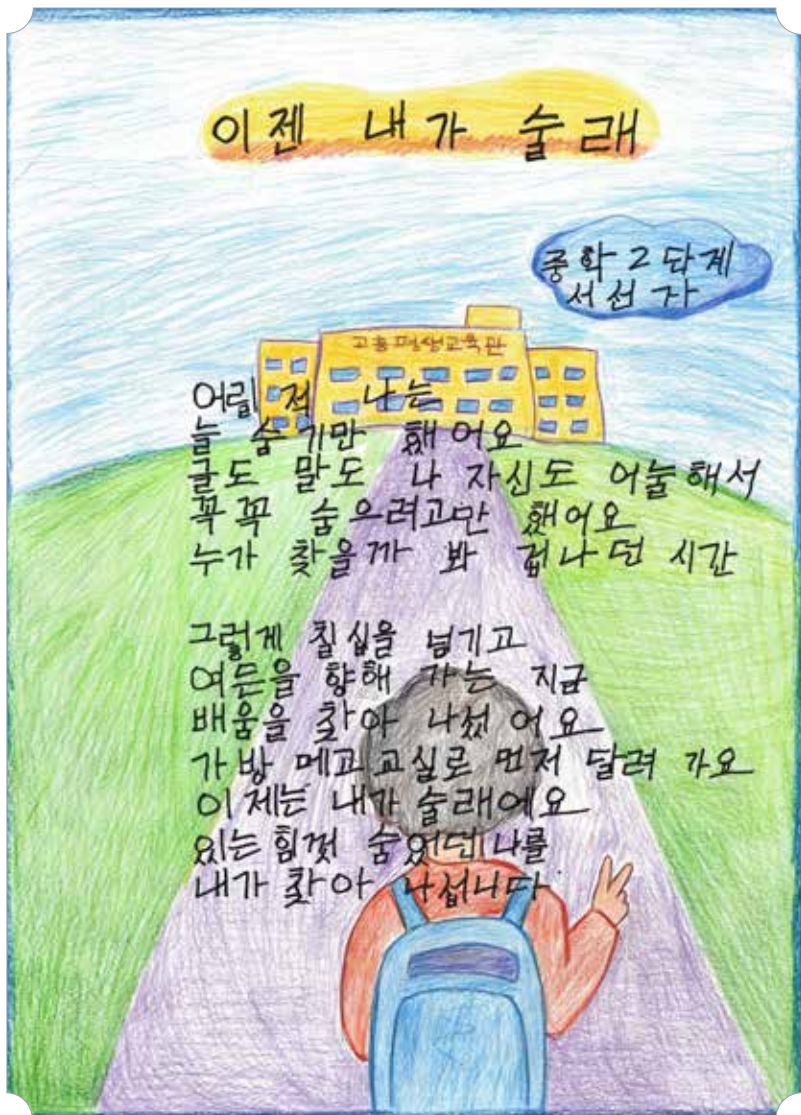 이젠 내가 술래
중화 2단계
서선자
고흥평생교육관
어릴 적 나는
늘 숨기만 했어요
글도 말도 나 자신도 어눌해서
꼭꼭 숨으려고만 했어요
누가 찾을까 봐 겁나던 시간
그렇게 칠십을 넘기고
여든을 향해 가는 지금
배움을 찾아 나섰어요
가방 메고 교실로 먼저 달려 가요
이제는 내가 술래에요
있는 힘껏 숨었던 나를
내가 찾아 나섭니다.